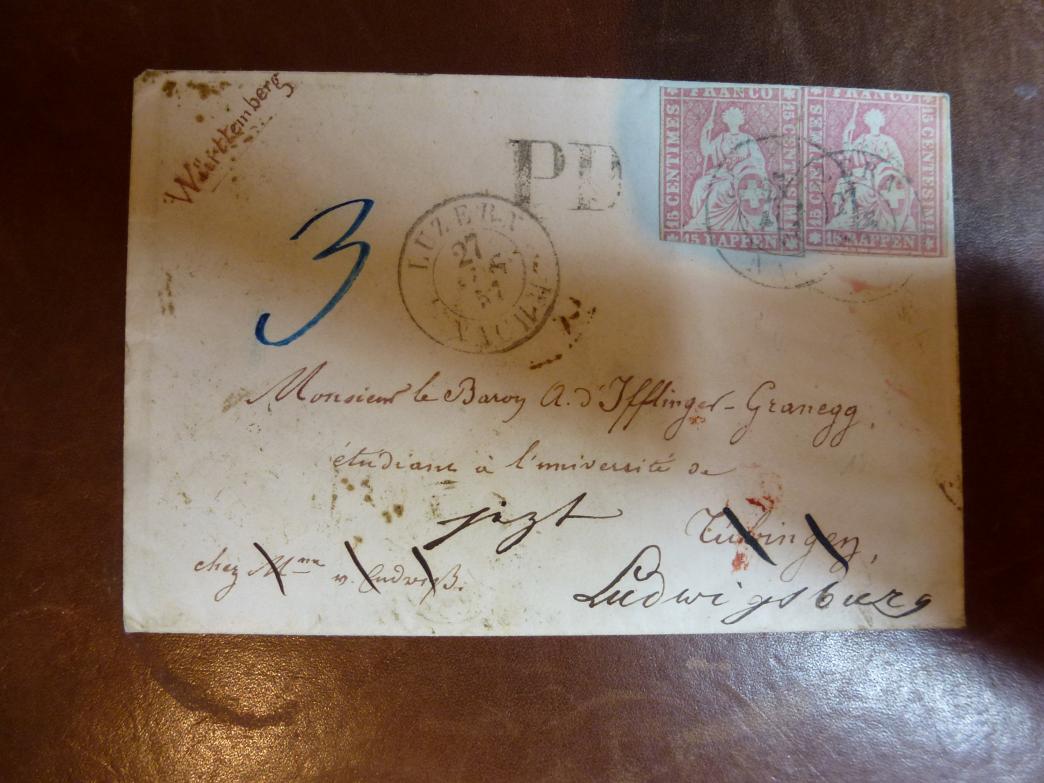 Württemberg
FRANCO FRANCO
15 CENTIMES 15 CENTESIMI 15 CENTIMES 15 CENTESIMI
15 RAPPEN 15 RAPPEN
PD
3
LUZERN
27
57
LUCERNE
Monsieur le Baron A. d'Ifflinger-Granegg,
étudiant à l'université de
jezt Tubingen,
chez Mme v. Ludwig.
Ludwigsburg